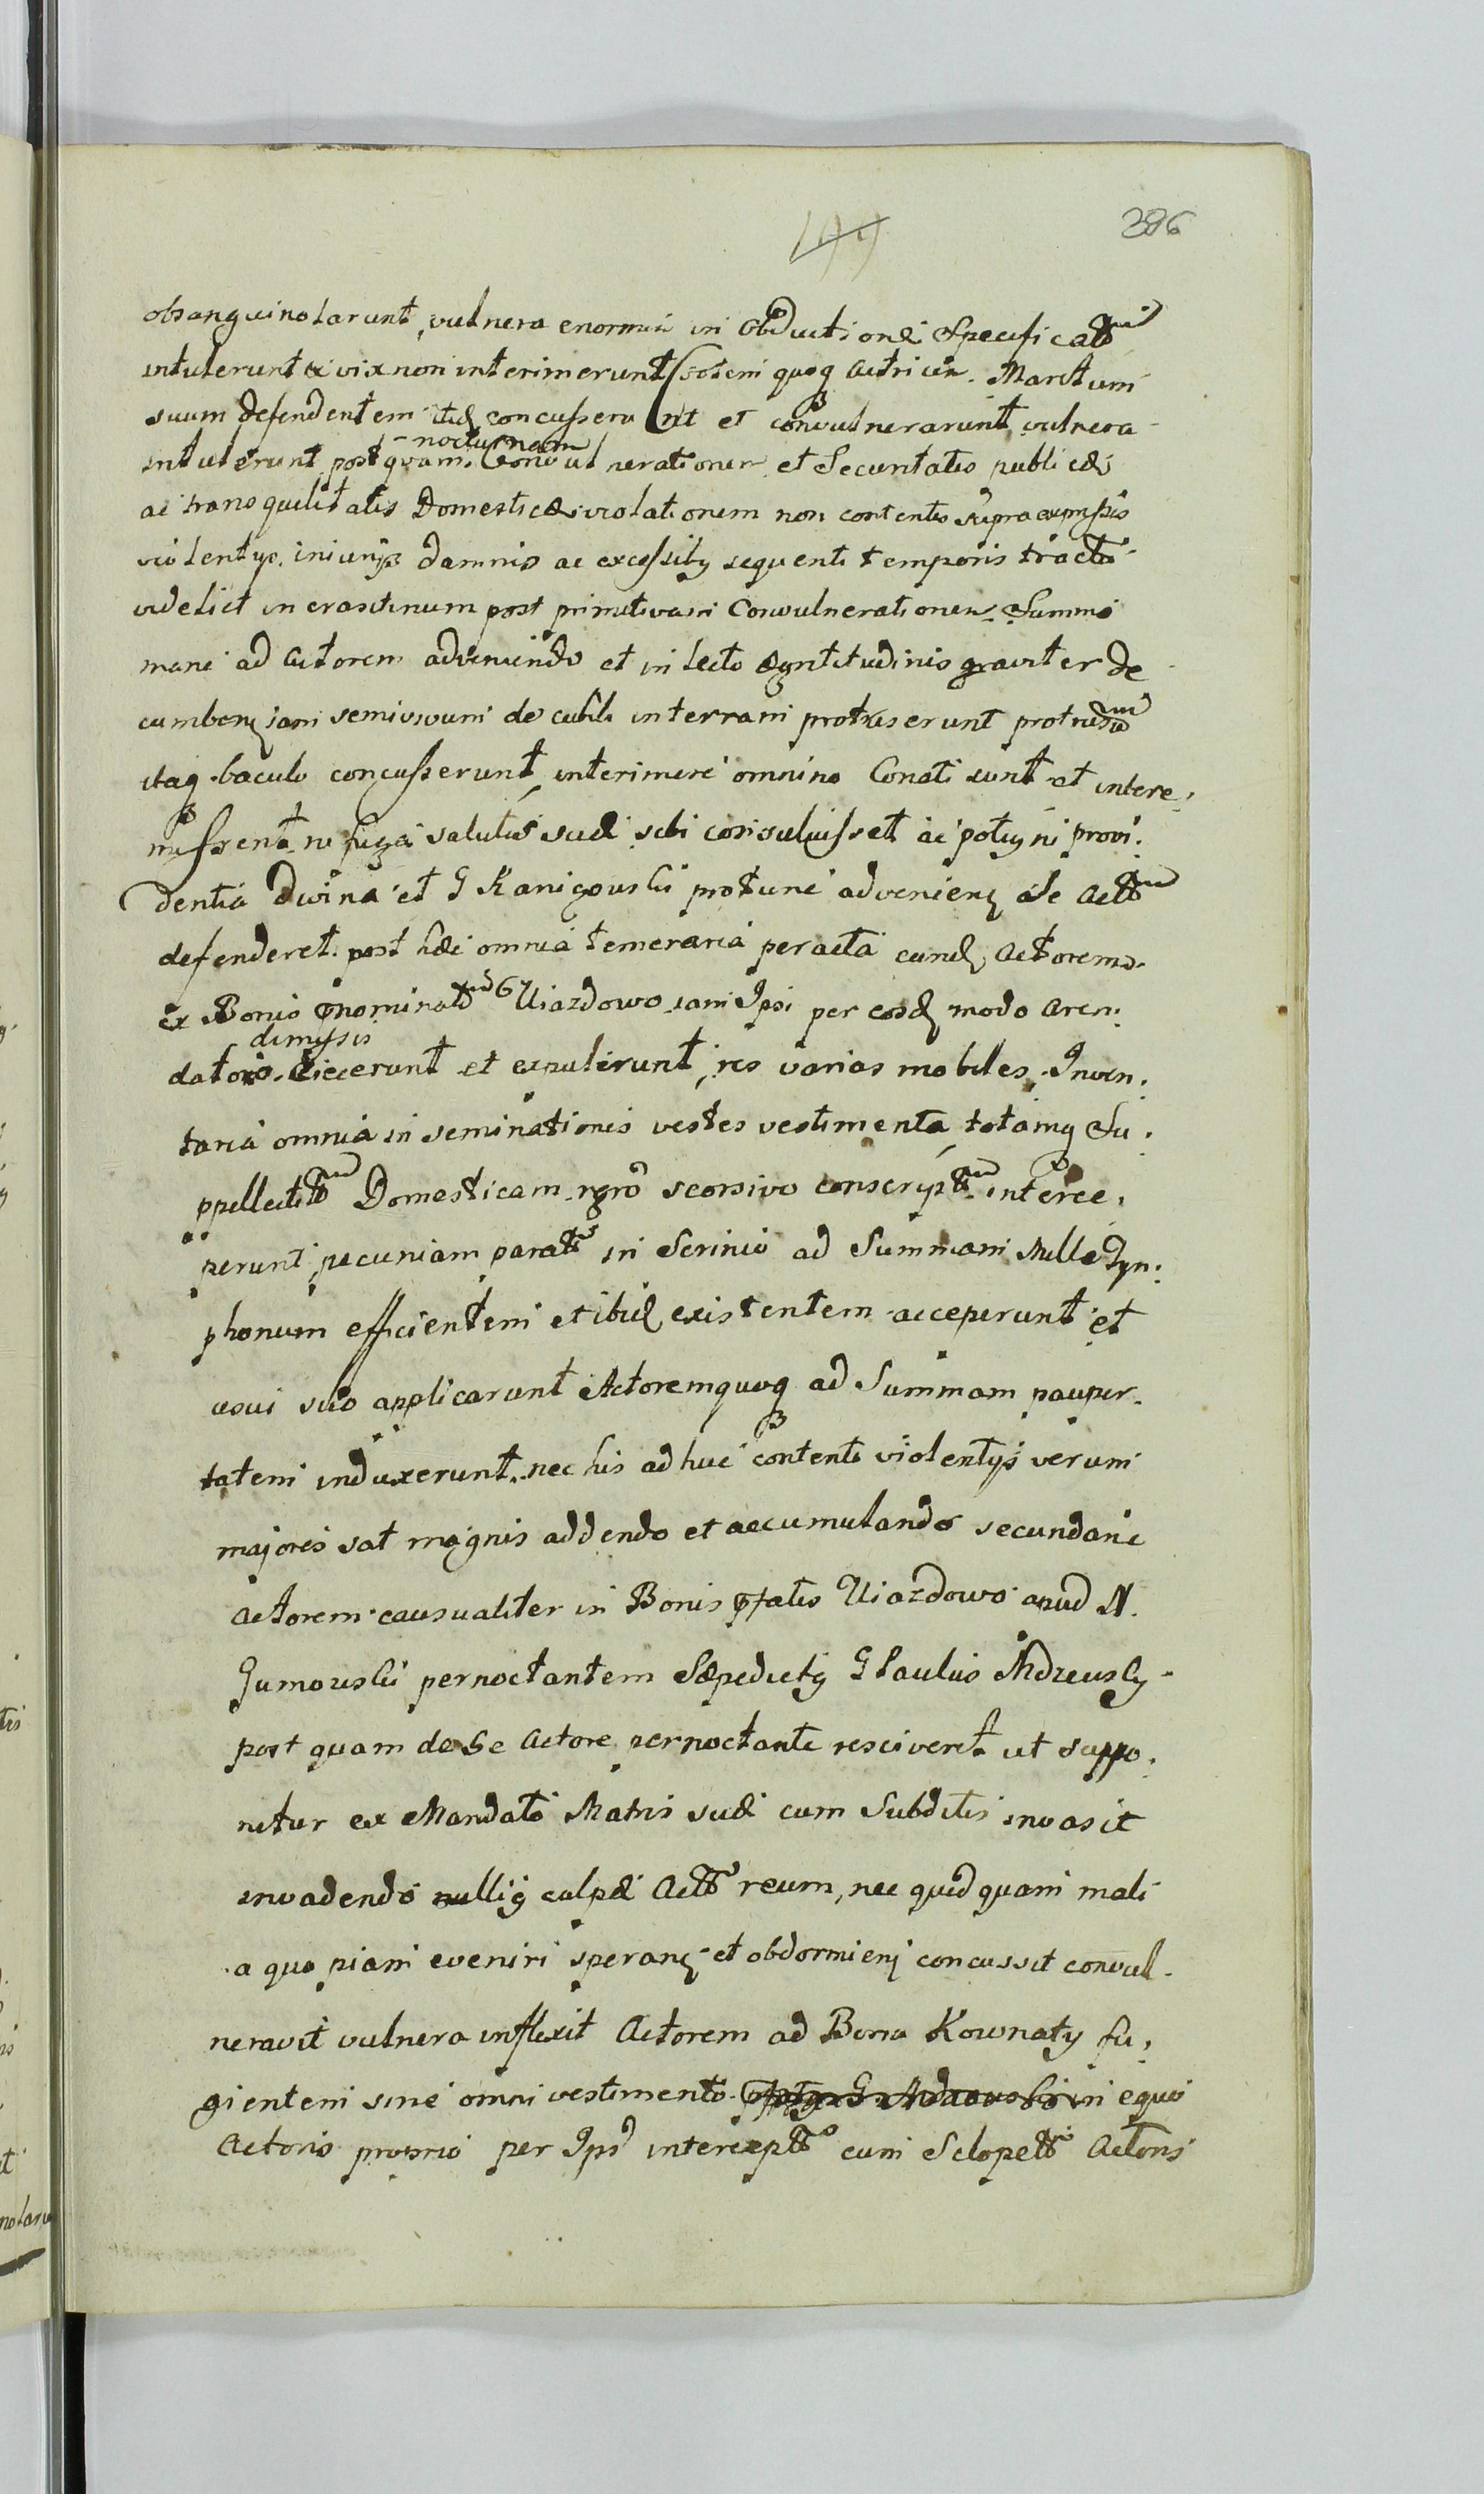 386
199
obsanguinolarunt, vulnera enormia in Obductione Specificatta
intulerunt & vix non interimerunt (totem quoq Actricem Maritum
suum defendentem itid concusserunt et convulnerarunt, vulnera
nocturnam
intulerunt, postquam Convulnerationem et Securitatis publicæ
ac transquilitatis Domesticæ violationem non contentis supra expressis
violentys iniurys damnis ac excessiby sequenti temporis tractu
videlict in crastinum post primitivam Convulnerationem Summo
mane ad Actorem adveniendo et in lecto ægritudinis graviter de
cumbenz iam semivivum de cubili in terram protruserunt protrusum
itaq baculo concusserunt, interimere omnino Conati sunt et intere,
missent ni fuga saluti suæ sibi consuluisset ac potiy ni provi:
dentia Divina et G Kanigowski protunc advenienz ase Acttem
defenderet. post hæc omnia temeraria peracta eund Actorem
ex Bonis pnominattis Uiazdowo iam Ipsi per eosd modo Aren:
dimissis
datorio Eiecerunt et expulerunt, res varias mobiles, Inven:
taria omnia in seminationis vestes vestimenta, totamq Su:
ppellectilem Domesticam rgro seorsivo conscriptam interce,
perunt, pecuniam paratam in Scrinio ad Summam Mille Tyn:
phonum efficientem et ibid existentem acceperunt et
usui suo applicarunt Actoremquoq ad Summam pauper.
tatem induxerunt. nec his adhuc contenti violentys verum
majores sat magnis addendo et accumulando secundarie
Actorem causualiter in Bonis pfatis Uiazdowo apud N.
Gumowski pernoctantem Sæpedicty G Paulus Mdzewsky
post quam de Se Actore pernoctante resciveret ut suppo:
nitur ex Mandato Matris suæ cum Subditis invasit
invadendo nulliq culpæ Actt reum, nec quid quam mali
a quo piam eveniri speranz et obdormienz concussit convul.
neravit vulnera inflixit Actorem ad Bona Kownaty fu,
gientem sine omni vestimento in equo
Actoris proprio per Ips intercepto cum Sclopetto Actoris